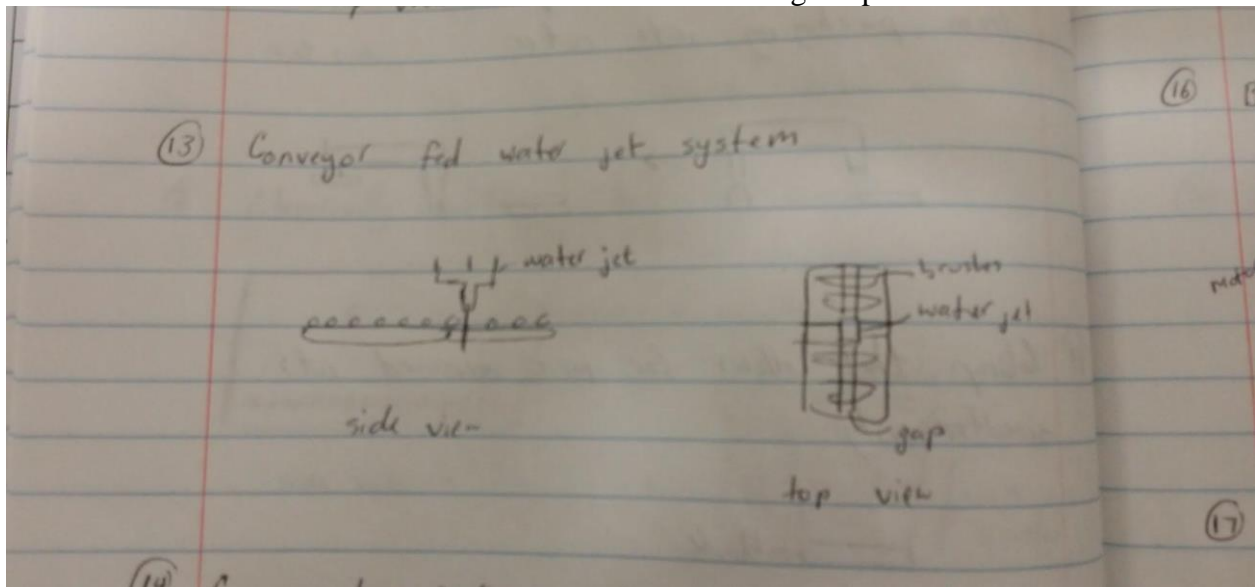 (13) Conveyor fed water jet system
water jet
side view
brushes
water jet
gap
top view
(16)
(17)
(14)